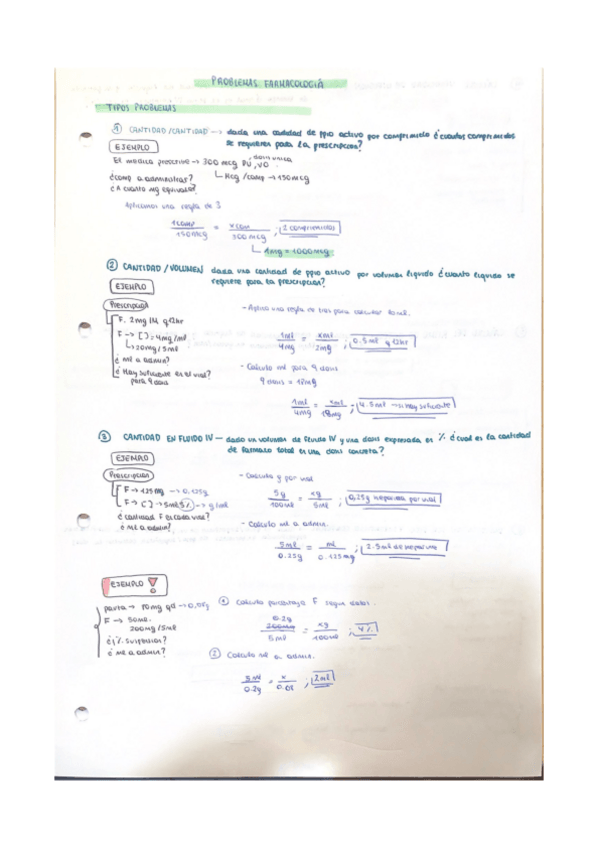 PROBLEMAS FARMACOLOGÍA
TIPOS PROBLEMAS
① CANTIDAD/CANTIDAD --> dada una cantidad de ppio activo por comprimido ¿cuantos comprimidos
se requieren para la prescripción?
EJEMPLO
El medico prescribe -> 300 mcg PU, VO. dosis unica
¿comp a administrar? Mcg/comp -> 150mcg
¿A cuanto mg equivale?
Aplicamos una regla de 3
1comp / 150mcg = xcom / 300 mcg ; 2 comprimidos
1mg = 1000mcg
② CANTIDAD / VOLUMEN dada una cantidad de ppio activo por volumen liquido ¿cuanto liquido se
requiere para la prescripción?
EJEMPLO
Prescripción
F. 2mg IM q12hr
F -> [ ] = 4mg/ml
20mg/5ml
¿ml a admin?
¿Hay suficiente en el vial?
para 9 dosis
- Aplico una regla de tres para calcular
1ml / 4mg = xml / 2mg ; 0.5ml q12hr
- Calculo ml para 9 dosis
9 dosis = 18mg
1ml / 4mg = xml / 18mg = 4.5ml -> si hay suficiente
③ CANTIDAD EN FLUIDO IV — dado un volumen de fluido IV y una dosis expresada en % ¿cual es la cantidad
de farmaco total en una dosis concreta?
EJEMPLO
Prescripcion
F -> 125mg -> 0.125g
F -> [ ] -> 5ml 5% -> g/ml
¿cantidad F en cada vial?
¿ml a admin?
- Calcula g por vial
5g / 100ml = xg / 5ml ; 0,25g heparina por vial
- Calculo ml a admin.
5ml / 0.25g = ml / 0.125mg ; 2.5ml de heparina
EJEMPLO !
F -> 50ml.
200mg/5ml
¿% suspension?
¿ml a admin?
① Calcula porcentaje F segun datos.
0.2g
200mg / 5ml = xg / 100ml ; 4%
② Calculo ml a admin.
5ml / 0.2g = x / 0.08 ; 2ml